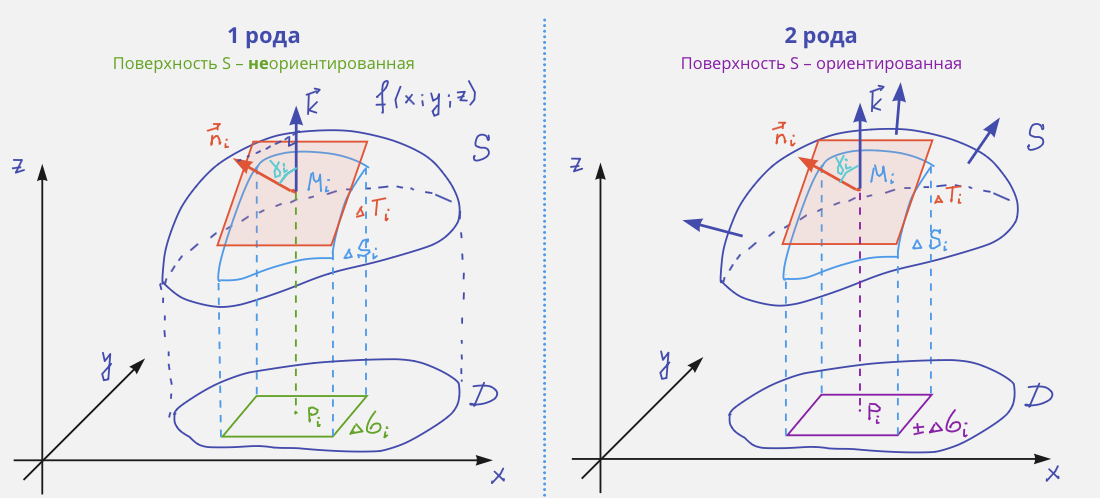 1 рода
Поверхность S – неориентированная
k
f(x;y;z)
n i
S
z
γ i
M i
Δ T i
Δ S i
y
D
P i
Δσ i
x
2 рода
Поверхность S – ориентированная
k
n i
S
z
γ i
M i
Δ T i
Δ S i
y
D
P i
±Δσ i
x